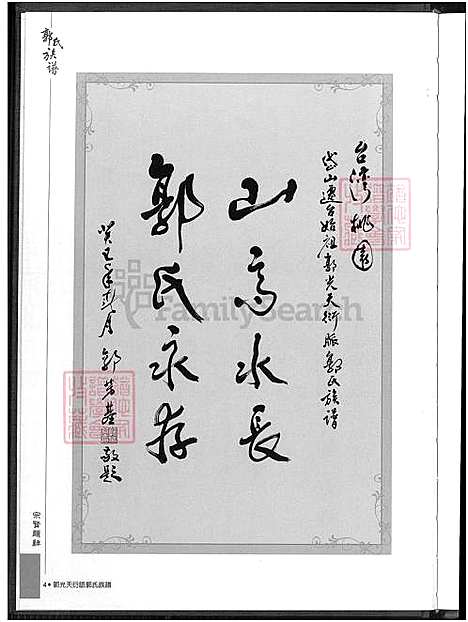 郭氏族譜
台灣桃園
岱山遷台始祖郭光天衍脈郭氏族譜
山高水長
郭氏永存
癸巳年
月
郭
基
敬題
FamilySearch
宗賢題辭
4•郭光天衍脈郭氏族譜